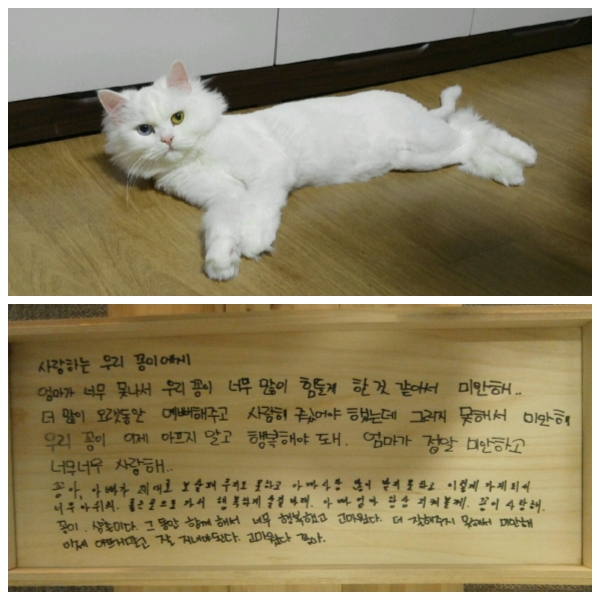 사랑하는 우리 꽁이에게
엄마가 너무 못나서 우리 꽁이 너무 많이 힘들게 한 것 같아서 미안해..
더 많이 오랫동안 예뻐해주고 사랑해 주었어야 했는데 그러지 못해서 미안해
우리 꽁이 이제 아프지 말고 행복해야 돼. 엄마가 정말 미안하고
너무너무 사랑해..
꽁아, 아빠가 제대로 보살펴 주지도 못하고 아빠사랑 많이 받지 못하고 이렇게 가게되서
너무 아쉬워. 좋은곳으로 가서 행복하게 살길 바래. 아빠 엄마 항상 지켜볼게. 꽁이 사랑해.
꽁이. 삼촌이다. 그동안 함께 해서 너무 행복했고 고마웠다. 더 잘해주지 못해서 미안해
이제 아프지말고 잘 지내야된다. 고마웠다 꽁아.